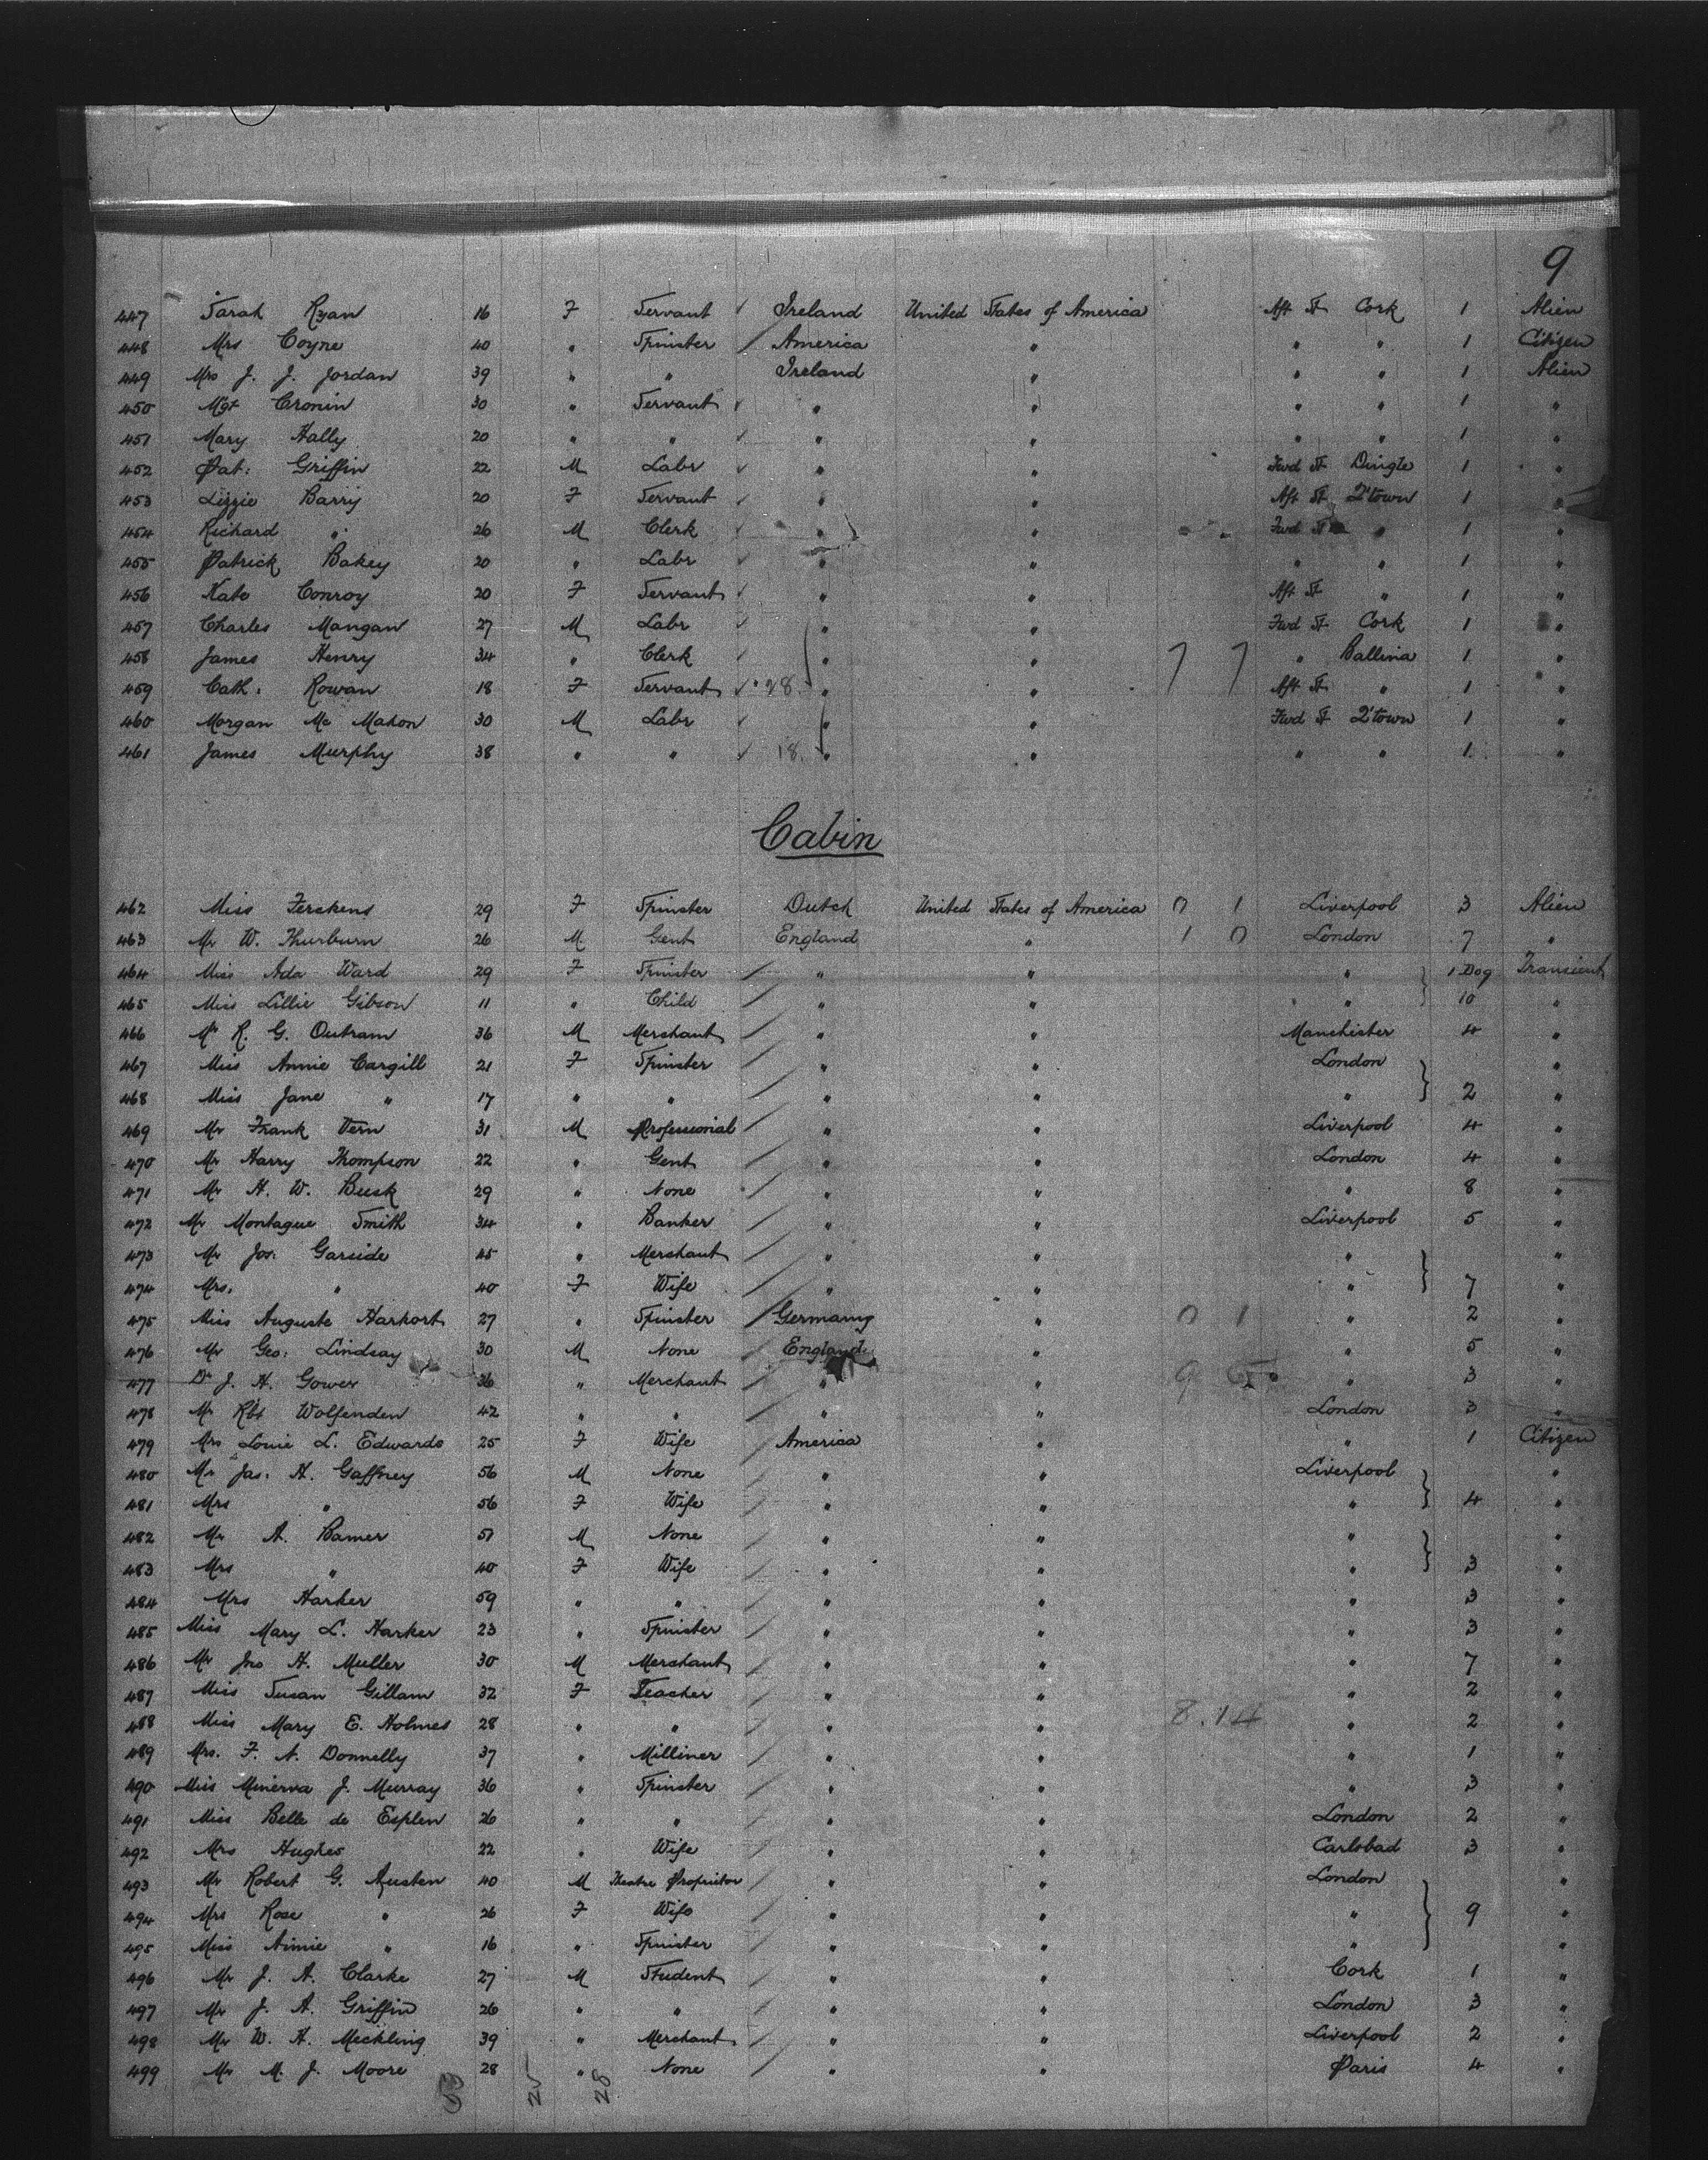 9
447 Sarah Ryan 16 F Servant Ireland United States of America Aft St Cork 1 Alien
448 Mrs Coyne 40 " Spinster America " " " 1 Citizen
449 Mrs J. J. Jordan 39 " " Ireland " " " 1 Alien
450 Mgt Cronin 30 " Servant " " " " 1 "
451 Mary Hally 20 " " " " " " 1 "
452 Pat: Griffin 22 M Labr " " Fwd St Dingle 1 "
453 Lizzie Barry 20 F Servant " " Aft St Q'town 1 "
454 Richard " 26 M Clerk " " Fwd St " 1 "
455 Patrick Bakey 20 " Labr " " " " 1 "
456 Kate Conroy 20 F Servant " " Aft St " 1 "
457 Charles Mangan 27 M Labr " " Fwd St Cork 1 "
458 James Henry 34 " Clerk " " 7 7 " Ballina 1 "
459 Cath: Rowan 18 F Servant 28 " " Aft St " 1 "
460 Morgan Mc Mahon 30 M Labr " " Fwd St Q'town 1 "
461 James Murphy 38 " " 18 " " " " 1 "
Cabin
462 Miss Ferckens 29 F Spinster Dutch United States of America 0 1 Liverpool 3 Alien
463 Mr W. Thurburn 26 M Gent England " 1 0 London 7 "
464 Miss Ada Ward 29 F Spinster " " " 1 Dog Transient
465 Miss Lillie Gibson 11 " Child " " " 10 "
466 Mr R. G. Outram 36 M Merchant " " Manchester 4 "
467 Miss Annie Cargill 21 F Spinster " " London "
468 Miss Jane " 17 " " " " " 2 "
469 Mr Frank Vern 31 M Professional " " Liverpool 4 "
470 Mr Harry Thompson 22 " Gent " " London 4 "
471 Mr H. W. Busk 29 " None " " " 8 "
472 Mr Montague Smith 34 " Banker " " Liverpool 5 "
473 Mr Jos: Garside 45 " Merchant " " " "
474 Mrs. " 40 F Wife " " " 7 "
475 Miss Auguste Harkort 27 " Spinster Germany " 0 1 " 2 "
476 Mr Geo: Lindsay 30 M None England " " 5 "
477 Dr J. H. Gower 36 " Merchant " " 9 " 3 "
478 Mr Rbt Wolfenden 42 " " " " London 3 "
479 Mrs Louie L. Edwards 25 F Wife America " " 1 Citizen
480 Mr Jas: H. Gaffney 56 M None " " Liverpool "
481 Mrs " 56 F Wife " " " 4 "
482 Mr A. Bamer 51 M None " " " "
483 Mrs " 40 F Wife " " " 3 "
484 Mrs Harker 59 " " " " " 3 "
485 Miss Mary L. Harker 23 " Spinster " " " 3 "
486 Mr Jno H. Muller 30 M Merchant " " " 7 "
487 Miss Susan Gillam 32 F Teacher " " " 2 "
488 Miss Mary E. Holmes 28 " " " " 8.14 " 2 "
489 Mrs. F. A. Donnelly 37 " Milliner " " " 1 "
490 Miss Minerva J. Murray 36 " Spinster " " " 3 "
491 Miss Belle de Esplen 26 " " " " London 2 "
492 Mrs Hughes 22 " Wife " " Carlsbad 3 "
493 Mr Robert G. Austen 40 M Theatre Proprietor " " London "
494 Mrs Rose " 26 F Wife " " " 9 "
495 Miss Aimie " 16 " Spinster " " " "
496 Mr J. A. Clarke 27 M Student " " Cork 1 "
497 Mr J. A. Griffin 26 " " " " London 3 "
498 Mr W. H. Meckling 39 " Merchant " " Liverpool 2 "
499 Mr M. J. Moore 28 " None " " Paris 4 "
25 28